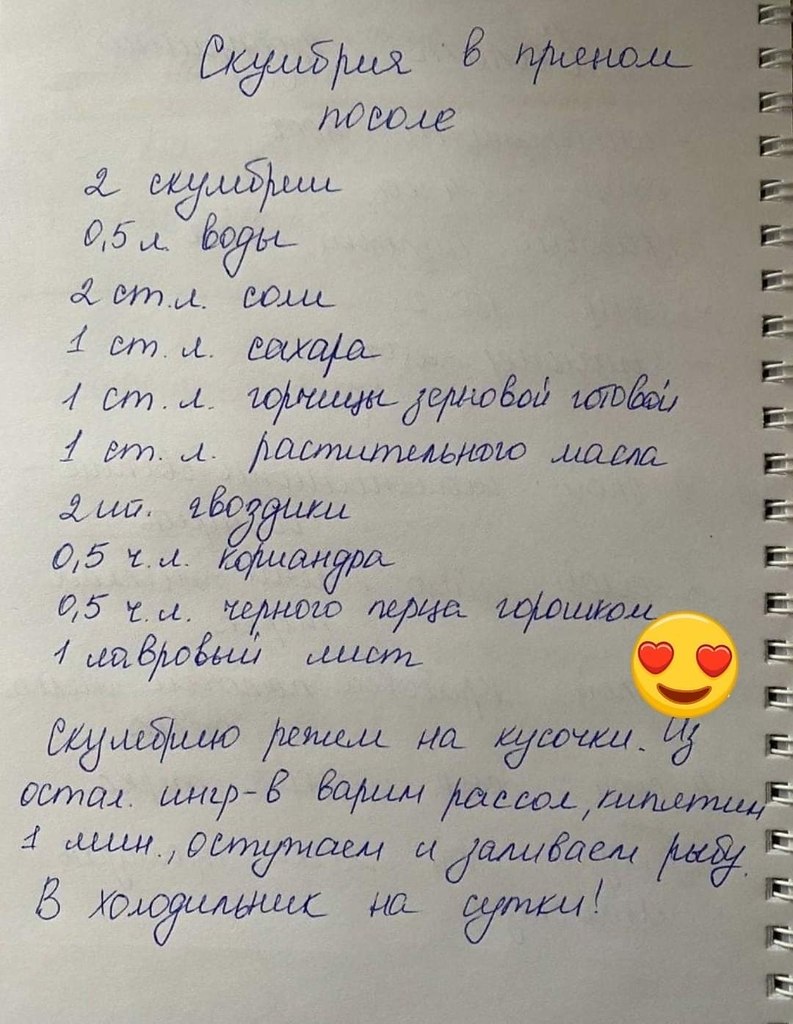 Скумбрия в пряном
посоле
2 скумбрии
0,5 л. воды
2 ст. л. соли
1 ст. л. сахара
1 ст. л. горчицы зерновой готовой
1 ст. л. растительного масла
2 шт. гвоздики
0,5 ч.л. кориандра
0,5 ч.л. черного перца горошком
1 лавровый лист
Скумбрию режем на кусочки. Из
остал. ингр-в варим рассол, кипятим
1 мин., остужаем и заливаем рыбу.
В холодильник на сутки!